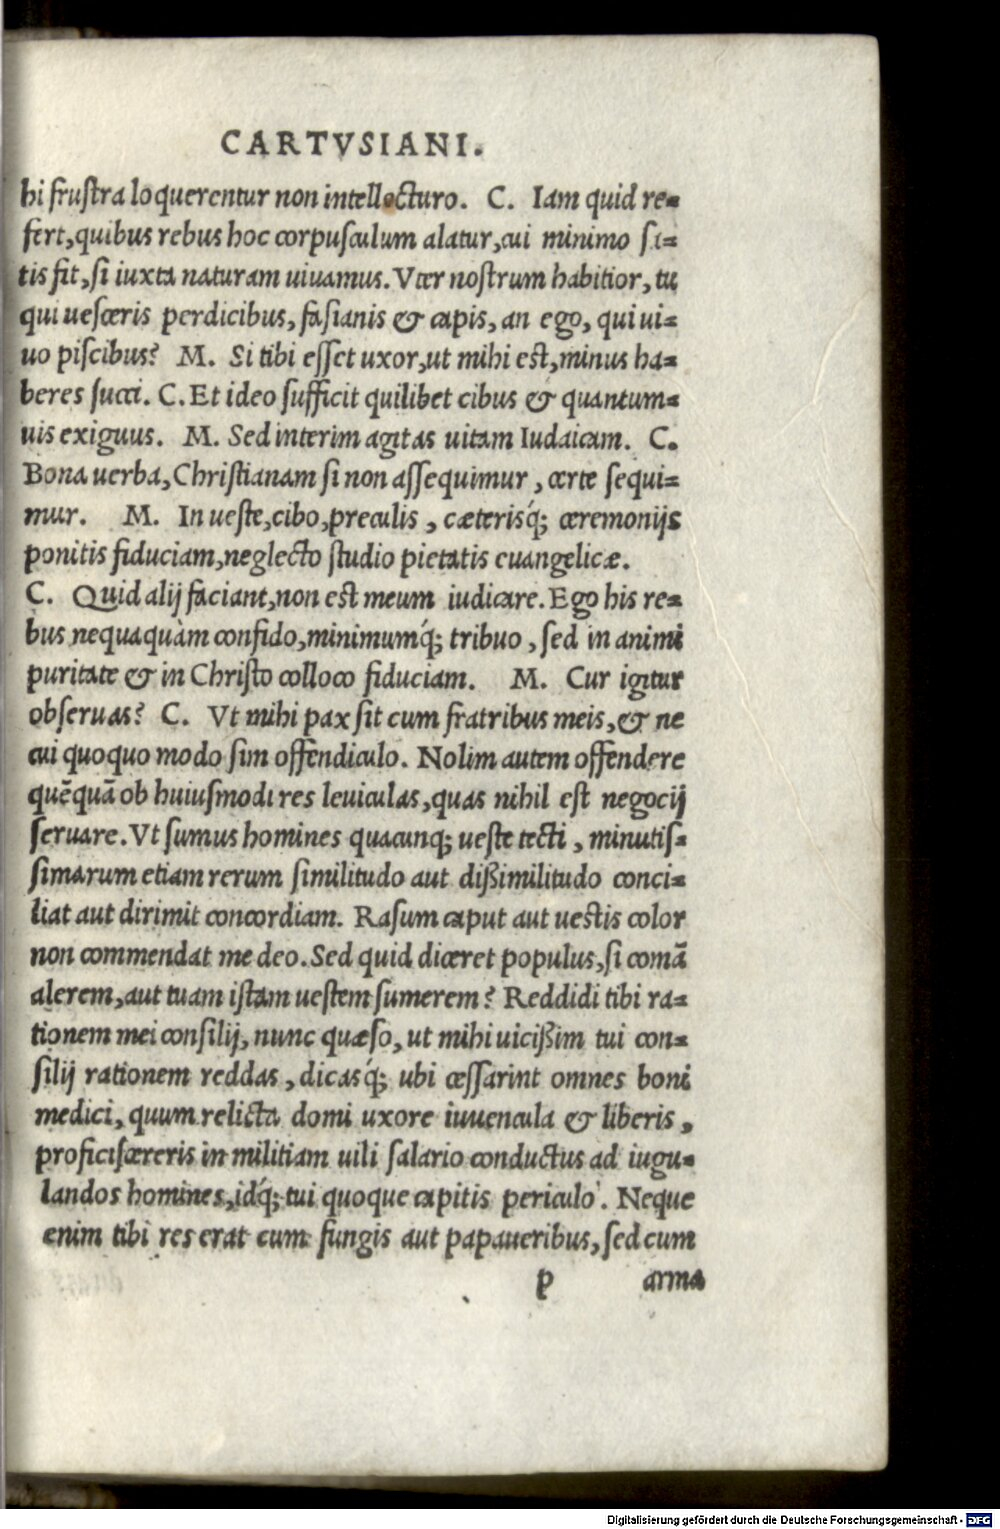 CARTVSIANI.
hi frustra loquerentur non intellecturo. C. Iam quid re-
fert, quibus rebus hoc corpusculum alatur, cui minimo sa-
tis fit, si iuxta naturam uiuamus. Vter nostrum habitior, tu
qui uesceris perdicibus, fasianis & capis, an ego, qui ui-
uo piscibus? M. Si tibi esset uxor, ut mihi est, minus ha-
beres succi. C. Et ideo sufficit quilibet cibus & quantum-
uis exiguus. M. Sed interim agitas uitam Iudaicam. C.
Bona uerba, Christianam si non assequimur, certe sequi-
mur. M. In ueste, cibo, preculis, cæterisq́; ceremonijs
ponitis fiduciam, neglecto studio pietatis euangelicæ.
C. Quid alij faciant, non est meum iudicare. Ego his re-
bus nequaquàm confido, minimumq́; tribuo, sed in animi
puritate & in Christo colloco fiduciam. M. Cur igitur
obseruas? C. Vt mihi pax sit cum fratribus meis, & ne
cui quoquo modo sim offendiculo. Nolim autem offendere
quēquā ob huiusmodi res leuiculas, quas nihil est negocij
seruare. Vt sumus homines quacunq; ueste tecti, minutis-
simarum etiam rerum similitudo aut dißimilitudo conci-
liat aut dirimit concordiam. Rasum caput aut uestis color
non commendat me deo. Sed quid diceret populus, si comā
alerem, aut tuam istam uestem sumerem? Reddidi tibi ra-
tionem mei consilij, nunc quæso, ut mihi uicißim tui con-
silij rationem reddas, dicasq́; ubi cessarint omnes boni
medici, quum relicta domi uxore iuuencula & liberis,
proficiscereris in militiam uili salario conductus ad iugu-
landos homines, idq́; tui quoque capitis periculo. Neque
enim tibi res erat cum fungis aut papaueribus, sed cum
p arma
Digitalisierung gefördert durch die Deutsche Forschungsgemeinschaft - DFG